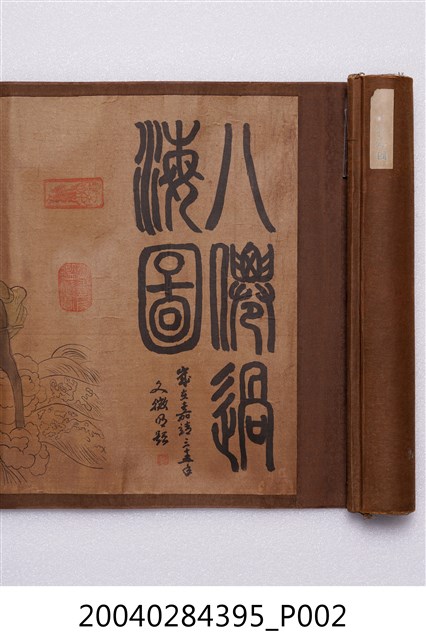 八僊過
海圖
歲在嘉靖三十五年
文徵明題
20040284395_P002